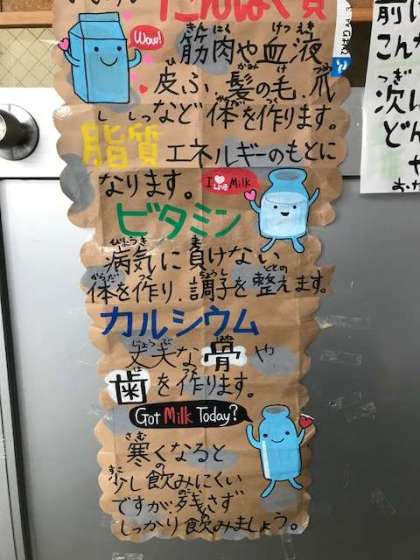 たんぱく質
Wow!
筋肉や血液
皮ふ、髪の毛、爪
など体を作ります。
脂質 エネルギーのもとに
なります。
I Love Milk
ビタミン
病気に負けない
体を作り、調子を整えます。
カルシウム
丈夫な骨や
歯を作ります。
Got Milk Today?
寒くなると
少し飲みにくい
ですが残さず
しっかり飲みましょう。
前に
こん
次い
どん
や